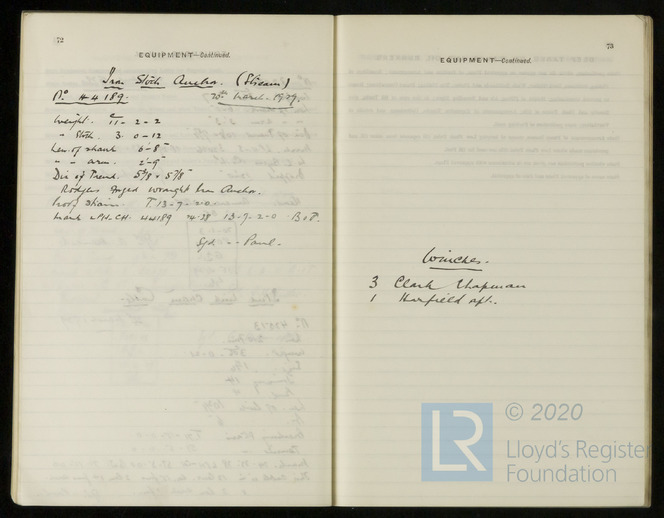 72
EQUIPMENT—Continued.
Iron Stock Anchor. (Stream)
No. 44189. 20th March 1939.
Weight. 11 - 2 - 2
" Stock. 3. 0 - 12
Len of shank 6'-8"
" " arm. 2'-9"
Dia of Trend. 5⅝ x 5⅞"
Rodgers Forged Wrought Iron Anchor.
Proof Strain T 13 - 7 - 2 - 0
Mark LPH-CH. 44189 13 - 7 - 2 - 0 B.o.T.
Sgd. -- Paul.
73
EQUIPMENT—Continued.
Winches.
3 Clark Chapman
1 Harfield aft.
LR
© 2020
Lloyd's Register
Foundation